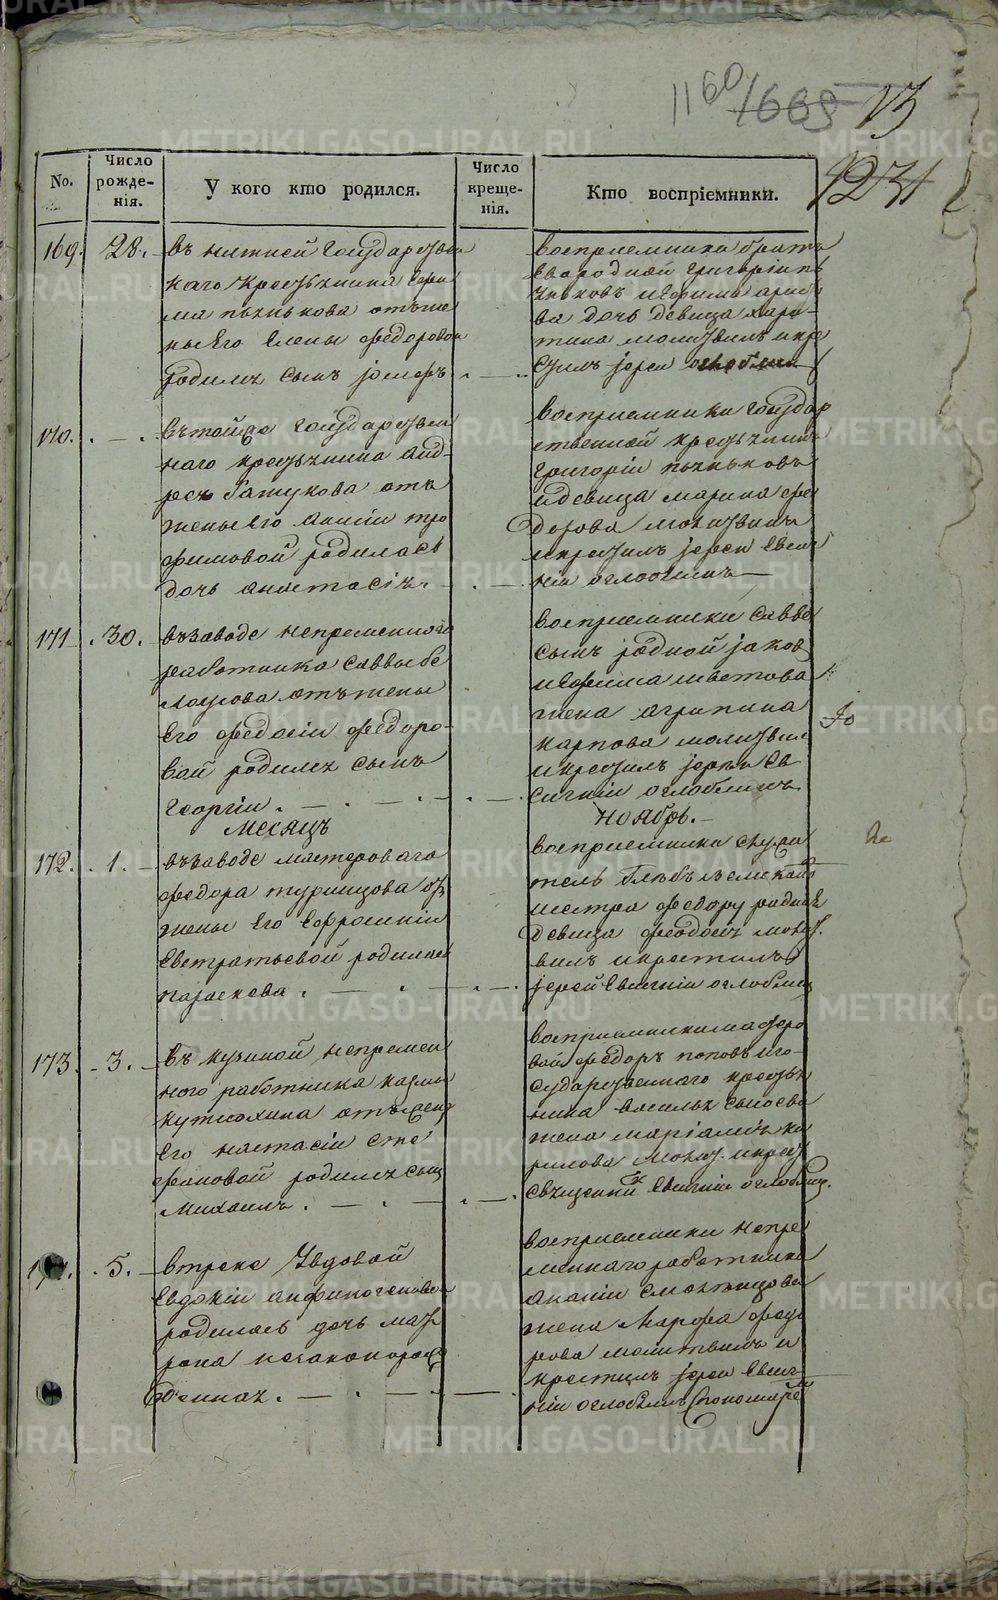 1160 1669 13
1231
No.
Число рожденія.
У кого кто родился.
Число крещенія.
Кто воспріемники.
169. 28.
въ нятней Государствен
наго крестьянина Ефи
ма пьянкова отъже
ныего Елены федоровой
родился сынъ іосифъ
воспріемники братъ
двародной григоріи пь
янковъ
дочь девица хари
тина молитвилъ икре
стилъ іереи
170.
вътойже Государствен
наго крестьянина анд
рея отъ
женыего анніи тро
фимовой родилась
дочь анастасія.
воспріемники Государ
ственной крестьянинъ
Григоріи пьянковъ
идевица марина фе
дорова молитвилъ
икрестилъ іереи Евге
ніи оглоблинъ
171. 30.
възаводе непременного
работника саввы бе
лоусова отъжены
Его федосіи федоро
вой родился сынъ
Георгіи.
воспріемники савве
сынъ родной іаков
иефима шветова
жена агрипина
карпова молитвил
икрестилъ іереи Ев
гигніи оглоблинъ
месяцъ
ноябрь.
172. 1.
възаводе мастероваго
федора турынцова от
жены Его Ефросиніи
Евстратьевой родилась
параскева.
воспріемники служи
тель глебъ
шестра федору родная
девица феодосія молит
вилъ икрестилъ
іерей Евгигніи оглоблин
173. 3.
въ непремен
ного работника казмы
кутюхина отъжены
Его настасіи сте
фановой родился сынъ
Михаилъ.
воспріемники мастеро
вой федоръ поповъ иго
сударственнаго крестья
нина василья сысоева
жена маріамія ки
рилова молит. икрест
священникъ Евгигніи оглоблин.
174. 5.
втреке Увдовой
Евдокіи анфиногеновой
родилась дочь мат
рона незаконорож
денная.
воспріемники непре
меннаго работника
ананіи
жена Марфа федо
рова молитвилъ и
крестилъ іереи Евгиг
ніи оглоблинъ спономаремъ
METRIKI.GASO-URAL.RU